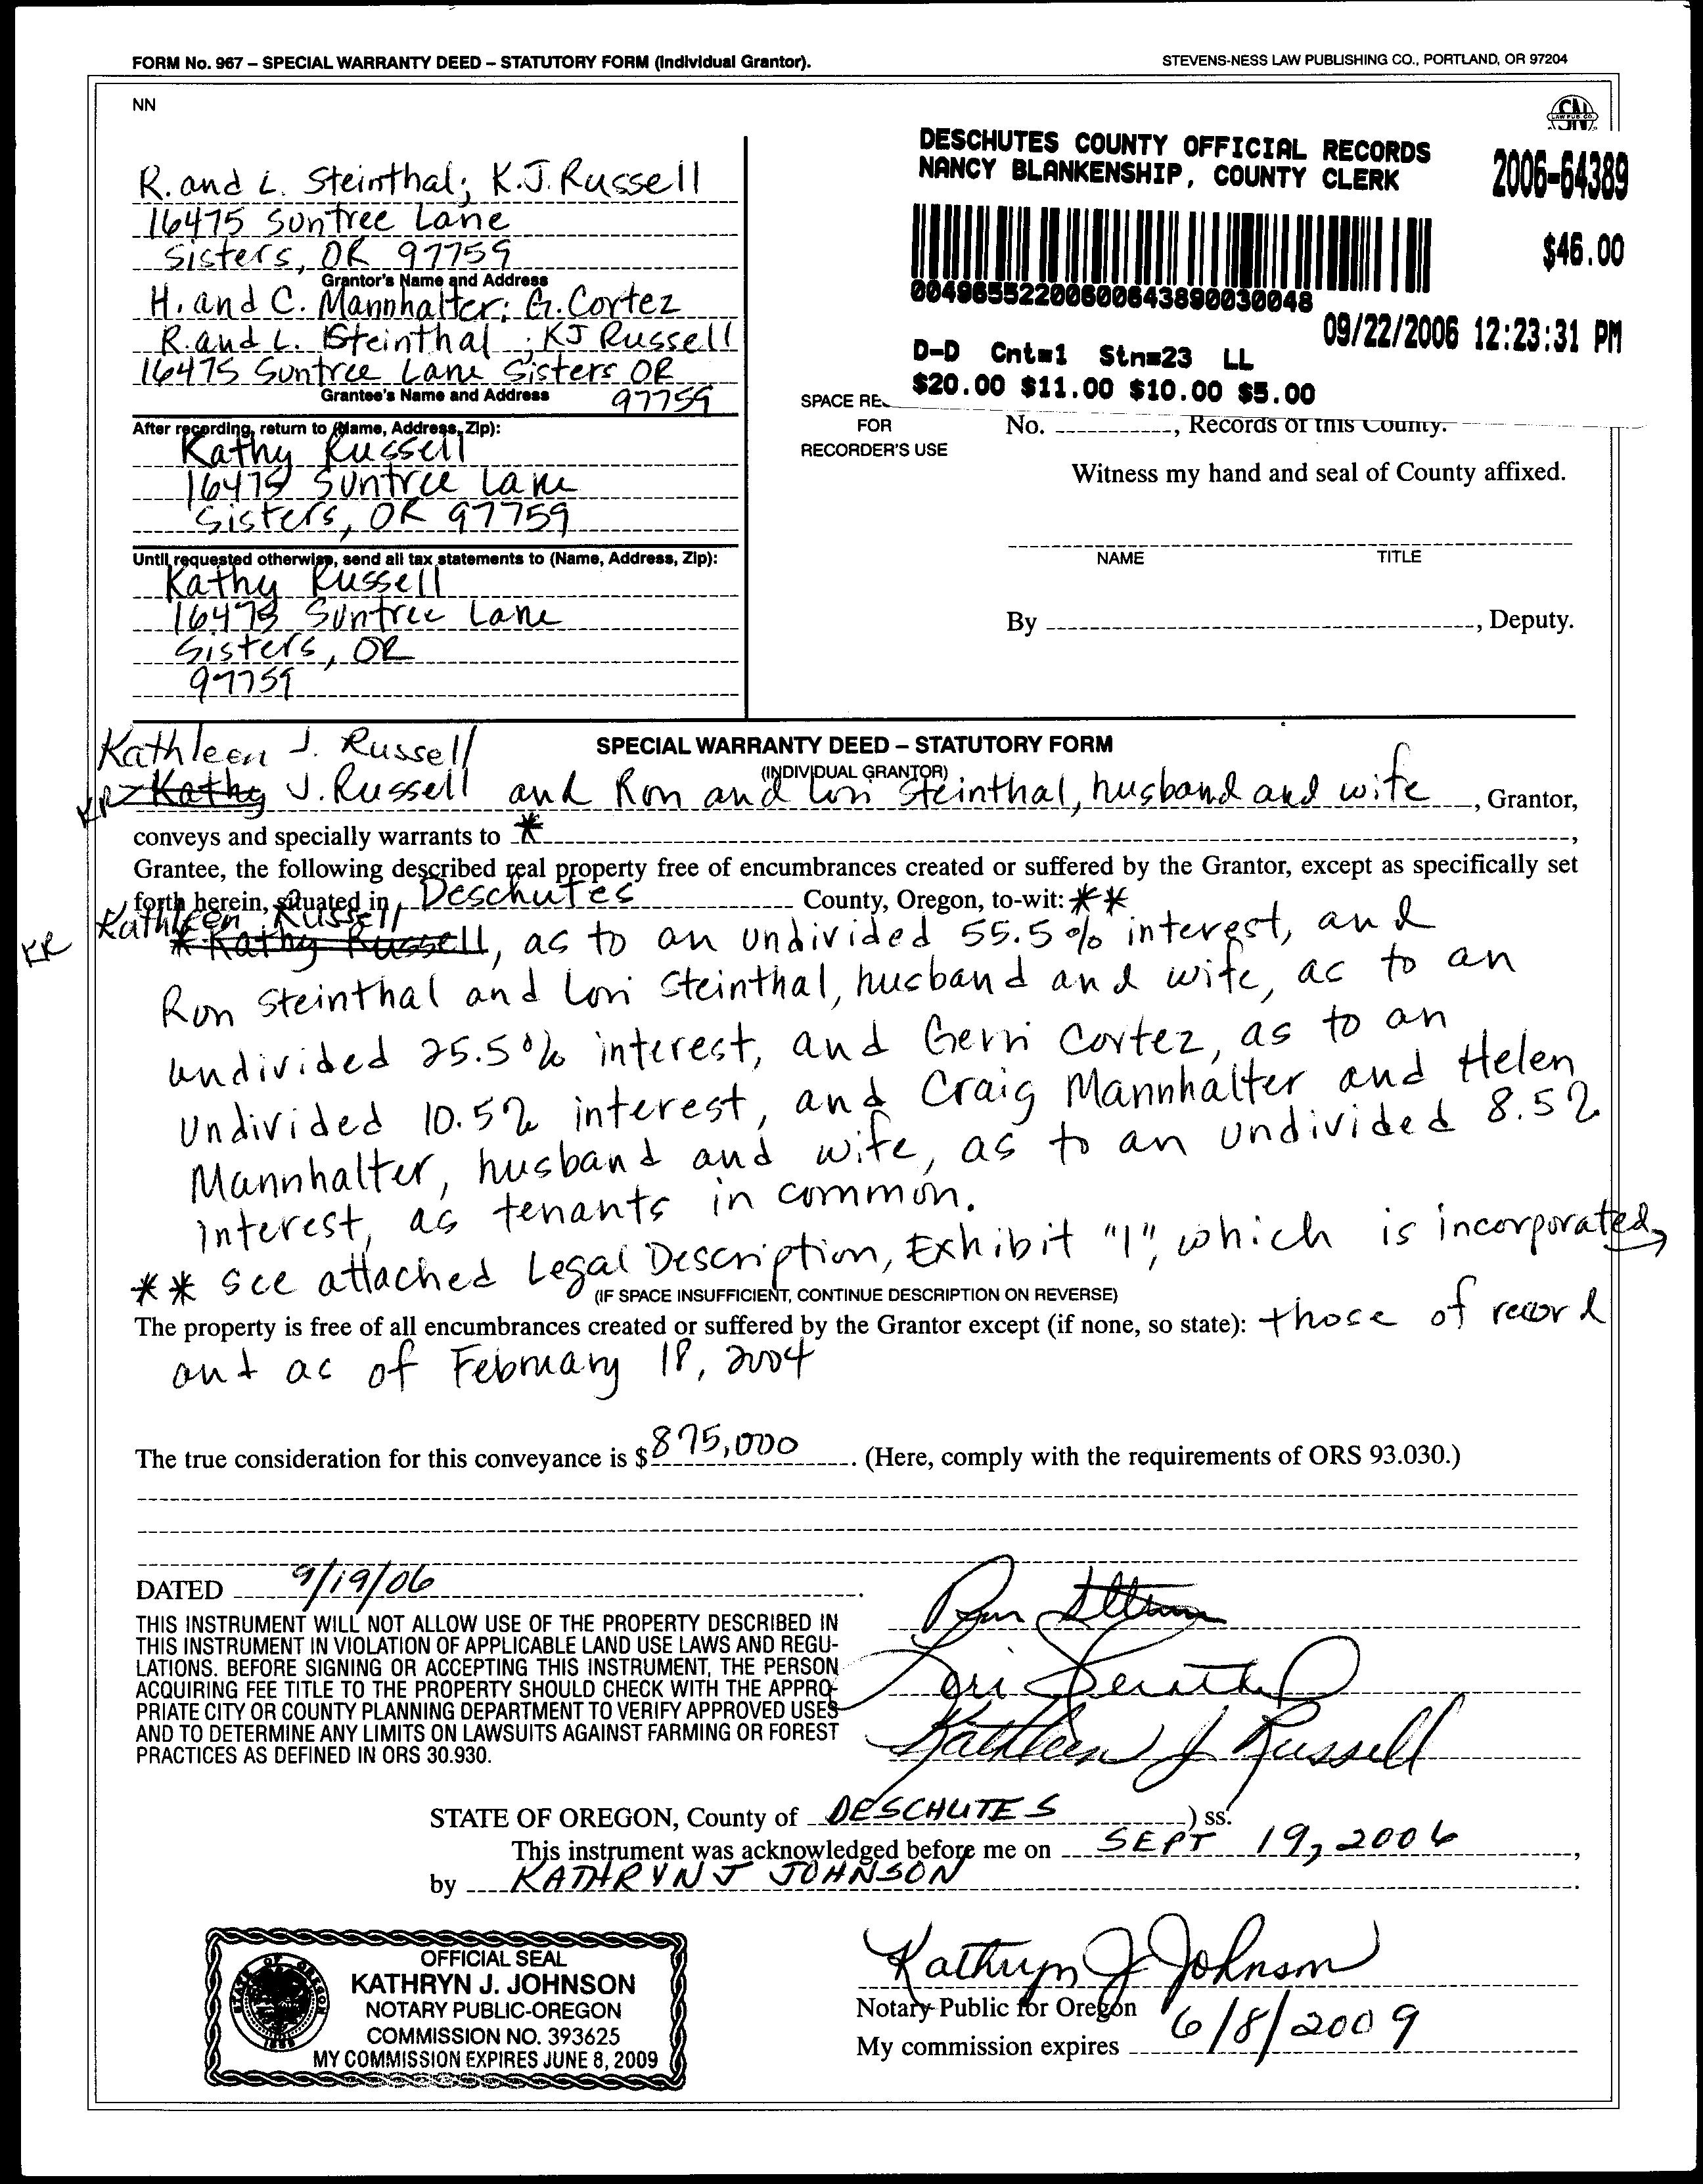 FORM No. 967 – SPECIAL WARRANTY DEED – STATUTORY FORM (Individual Grantor).
STEVENS-NESS LAW PUBLISHING CO., PORTLAND, OR 97204
NN
SN
LAW PUB CO.
R. and L. Steinthal; K.J. Russell
16475 Suntree Lane
Sisters, OR 97759
Grantor's Name and Address
H. and C. Mannhalter; G. Cortez
R. and L. Steinthal; KJ Russell
16475 Suntree Lane Sisters OR
97759
Grantee's Name and Address
After recording, return to (Name, Address, Zip):
Kathy Russell
16475 Suntree Lane
Sisters, OR 97759
Until requested otherwise, send all tax statements to (Name, Address, Zip):
Kathy Russell
16475 Suntree Lane
Sisters, OR
97759
DESCHUTES COUNTY OFFICIAL RECORDS
NANCY BLANKENSHIP, COUNTY CLERK
2006-64389
$46.00
00496552200600643890030048
09/22/2006 12:23:31 PM
D-D Cnt=1 Stn=23 LL
$20.00 $11.00 $10.00 $5.00
SPACE RE
FOR
RECORDER'S USE
No. , Records of this County.
Witness my hand and seal of County affixed.
NAME TITLE
By , Deputy.
SPECIAL WARRANTY DEED – STATUTORY FORM
(INDIVIDUAL GRANTOR)
Kathleen J. Russell
KR Kathy J. Russell and Ron and Lori Steinthal, husband and wife, Grantor,
conveys and specially warrants to *,
Grantee, the following described real property free of encumbrances created or suffered by the Grantor, except as specifically set
forth herein, situated in Deschutes County, Oregon, to-wit: **
Kathleen Russell
KR * Kathy Russell, as to an undivided 55.5% interest, and
Ron Steinthal and Lori Steinthal, husband and wife, as to an
undivided 25.5% interest, and Gerri Cortez, as to an
undivided 10.5% interest, and Craig Mannhalter and Helen
Mannhalter, husband and wife, as to an undivided 8.5%
interest, as tenants in common.
** See attached Legal Description, Exhibit "1", which is incorporated
(IF SPACE INSUFFICIENT, CONTINUE DESCRIPTION ON REVERSE)
The property is free of all encumbrances created or suffered by the Grantor except (if none, so state): those of record
and as of February 18, 2004
The true consideration for this conveyance is $875,000. (Here, comply with the requirements of ORS 93.030.)
DATED 9/19/06
THIS INSTRUMENT WILL NOT ALLOW USE OF THE PROPERTY DESCRIBED IN
THIS INSTRUMENT IN VIOLATION OF APPLICABLE LAND USE LAWS AND REGU-
LATIONS. BEFORE SIGNING OR ACCEPTING THIS INSTRUMENT, THE PERSON
ACQUIRING FEE TITLE TO THE PROPERTY SHOULD CHECK WITH THE APPRO-
PRIATE CITY OR COUNTY PLANNING DEPARTMENT TO VERIFY APPROVED USES
AND TO DETERMINE ANY LIMITS ON LAWSUITS AGAINST FARMING OR FOREST
PRACTICES AS DEFINED IN ORS 30.930.
Ron
Lori
Kathleen J Russell
STATE OF OREGON, County of DESCHUTES ) ss.
This instrument was acknowledged before me on SEPT 19, 2006,
by KATHRYN J JOHNSON.
OFFICIAL SEAL
KATHRYN J. JOHNSON
NOTARY PUBLIC-OREGON
COMMISSION NO. 393625
MY COMMISSION EXPIRES JUNE 8, 2009
STATE OF OREGON
1859
Kathryn J Johnson
Notary Public for Oregon
My commission expires 6/8/2009